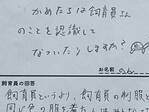 かめたちは飼育員さん
のことを認識して
なついたりしますか？
お名前
飼育員の回答
飼育員というより、飼育員の制服と
同じ色の服を着た